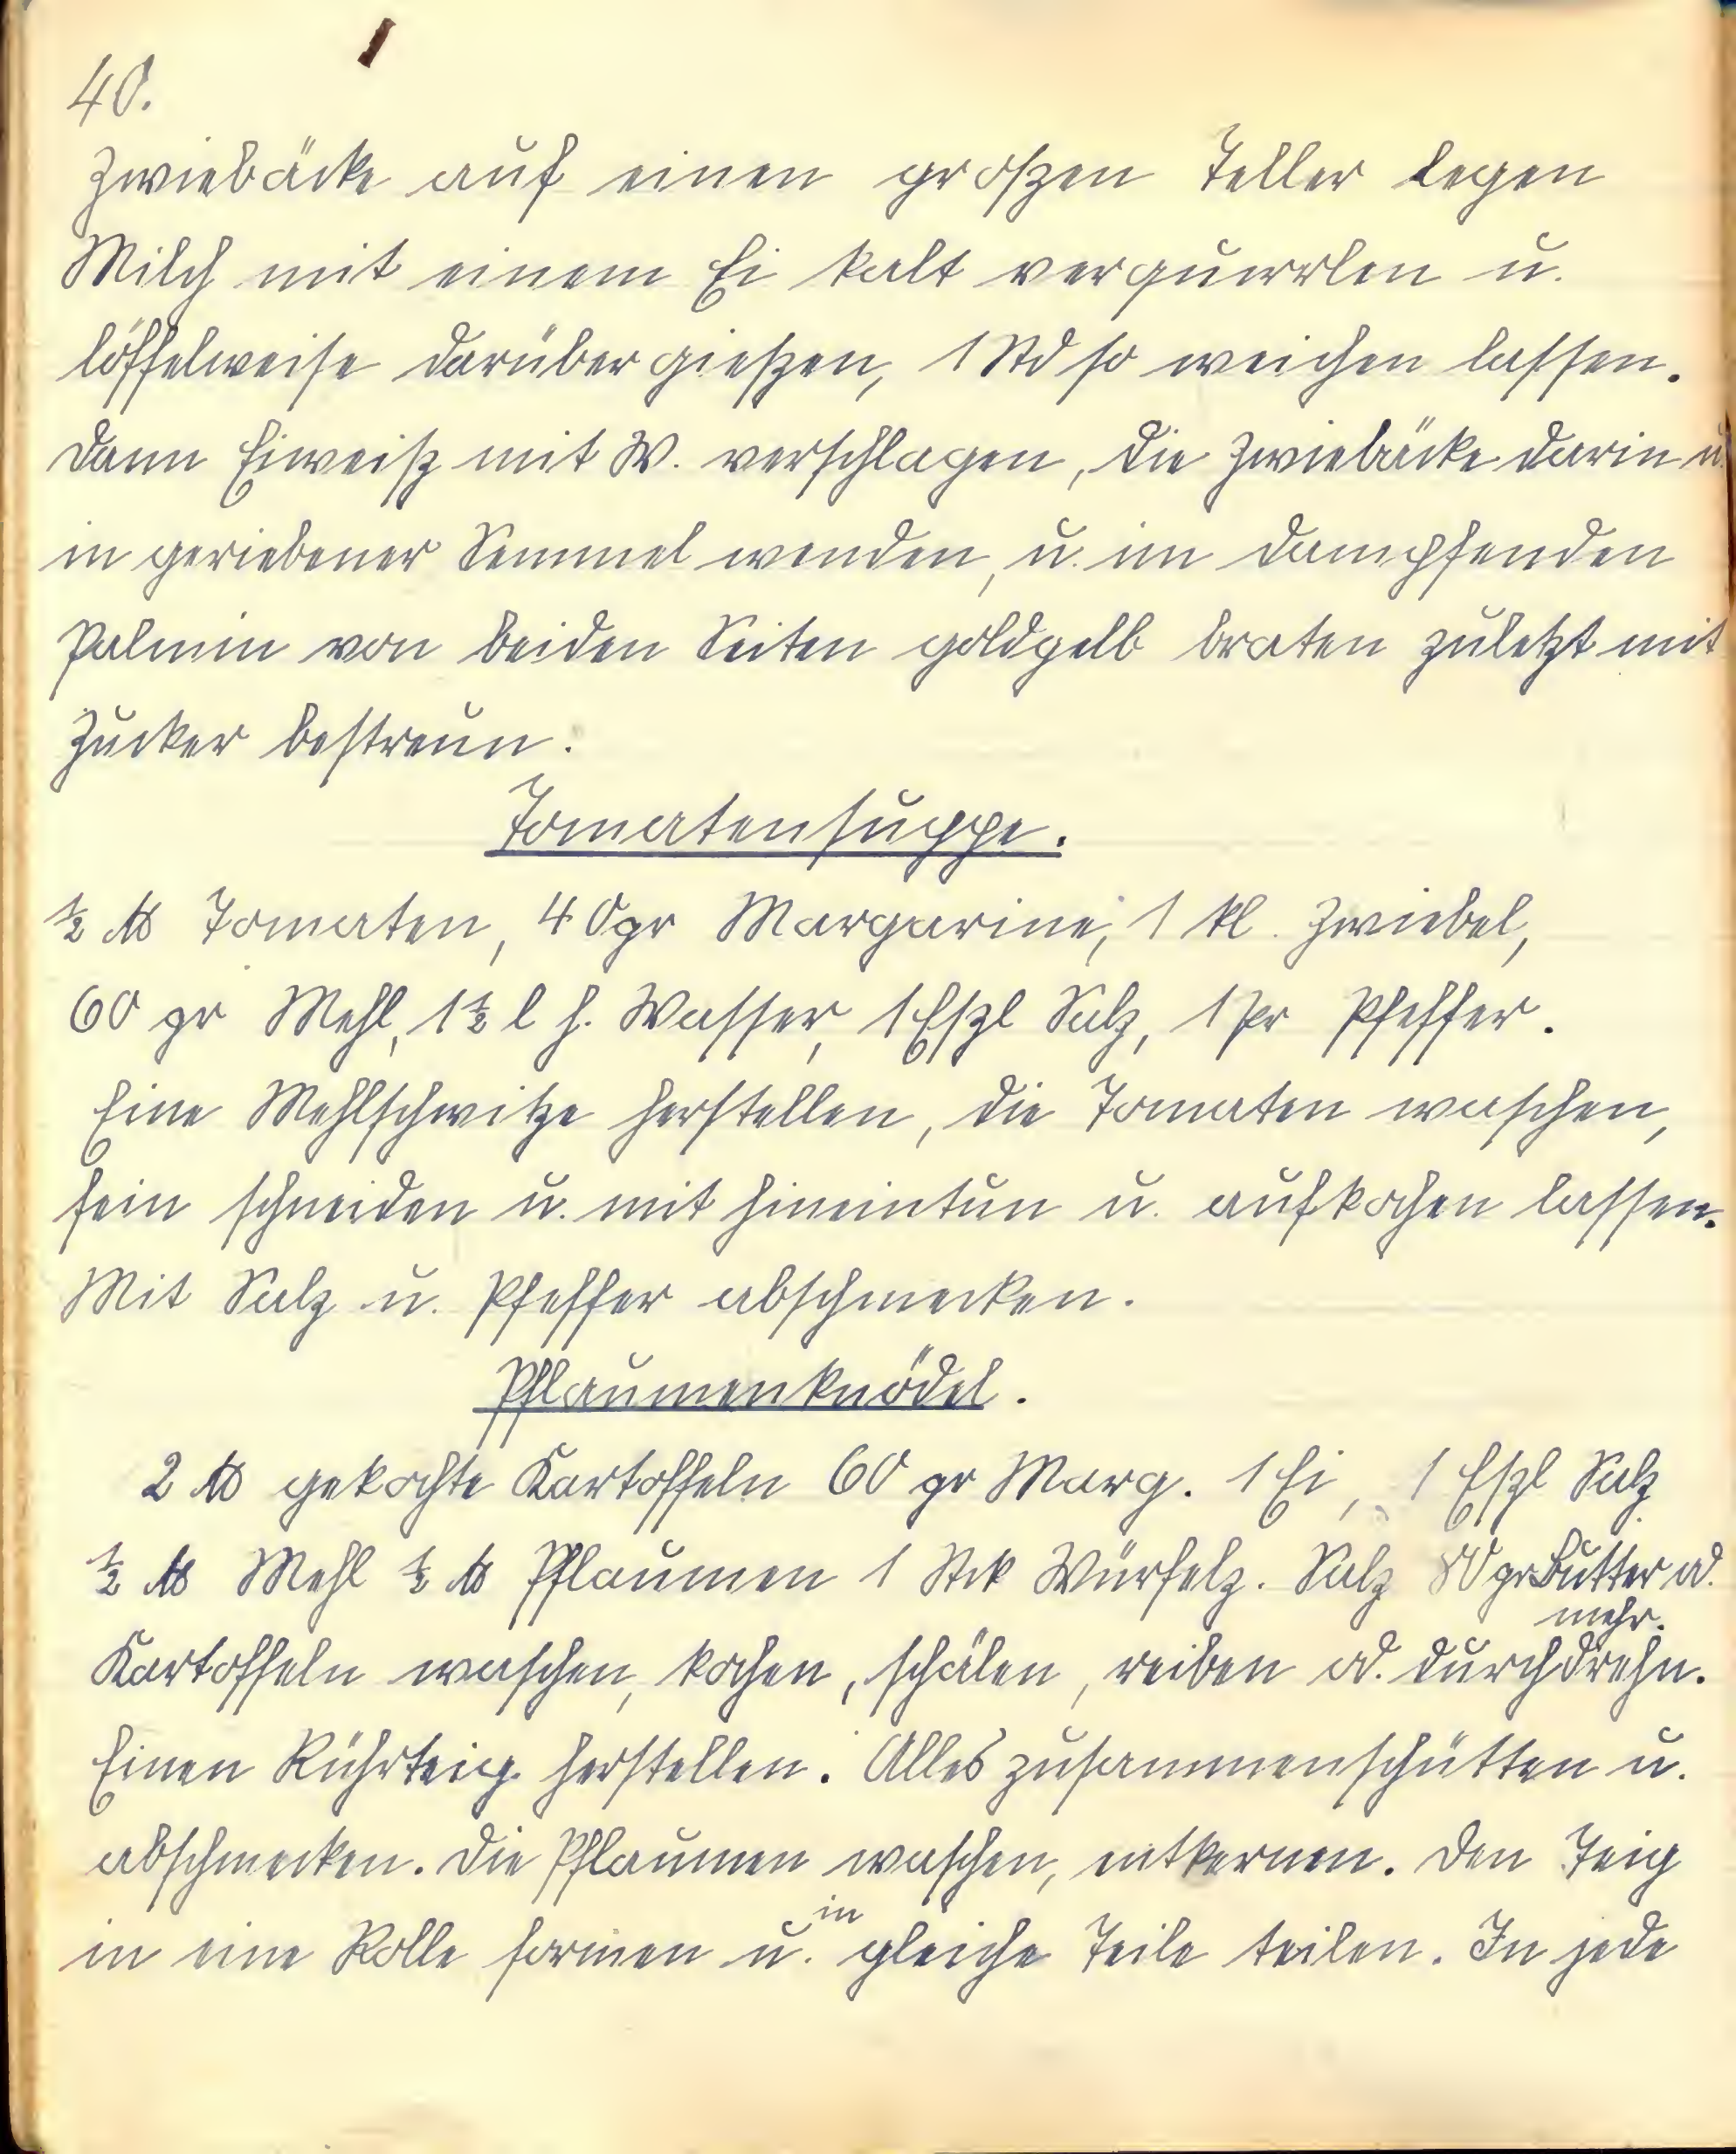 40.
Zwiebäcke auf einen großen Teller legen
Milch mit einem Ei kalt verquirrlen u.
löffelweise darüber gießen, 1 Std so weichen lassen.
Dann Eiweiß mit W. verschlagen, die Zwiebäcke darin u.
in geriebener Semmel wenden, u. im dampfenden
Palmin von beiden Seiten goldgelb braten zuletzt mit
Zucker bestreun.
Tomatensuppe.
½ ℔ Tomaten, 40gr Margarine, 1 kl. Zwiebel,
60 gr Mehl, 1½ l h. Wasser, 1 Eßl Salz, 1 Pr Pfeffer.
Eine Mehlschwitze herstellen, die Tomaten waschen,
fein schneiden u. mit hineintun u. aufkochen lassen.
Mit Salz u. Pfeffer abschmecken.
Pflaumenknödel.
2 ℔ gekochte Kartoffeln 60 gr Marg. 1 Ei, 1 Eßl Salz
½ ℔ Mehl ½ ℔ Pflaumen 1 Stck Würfelz. Salz 80 gr Butter od.
mehr.
Kartoffeln waschen, kochen, schälen, reiben od. durchdrehn.
Einen Rührteig herstellen. Alles zusammenschütten u.
abschmecken. Die Pflaumen waschen, entkernen. Den Teig
in eine Rolle formen u. in gleiche Teile teilen. In jede